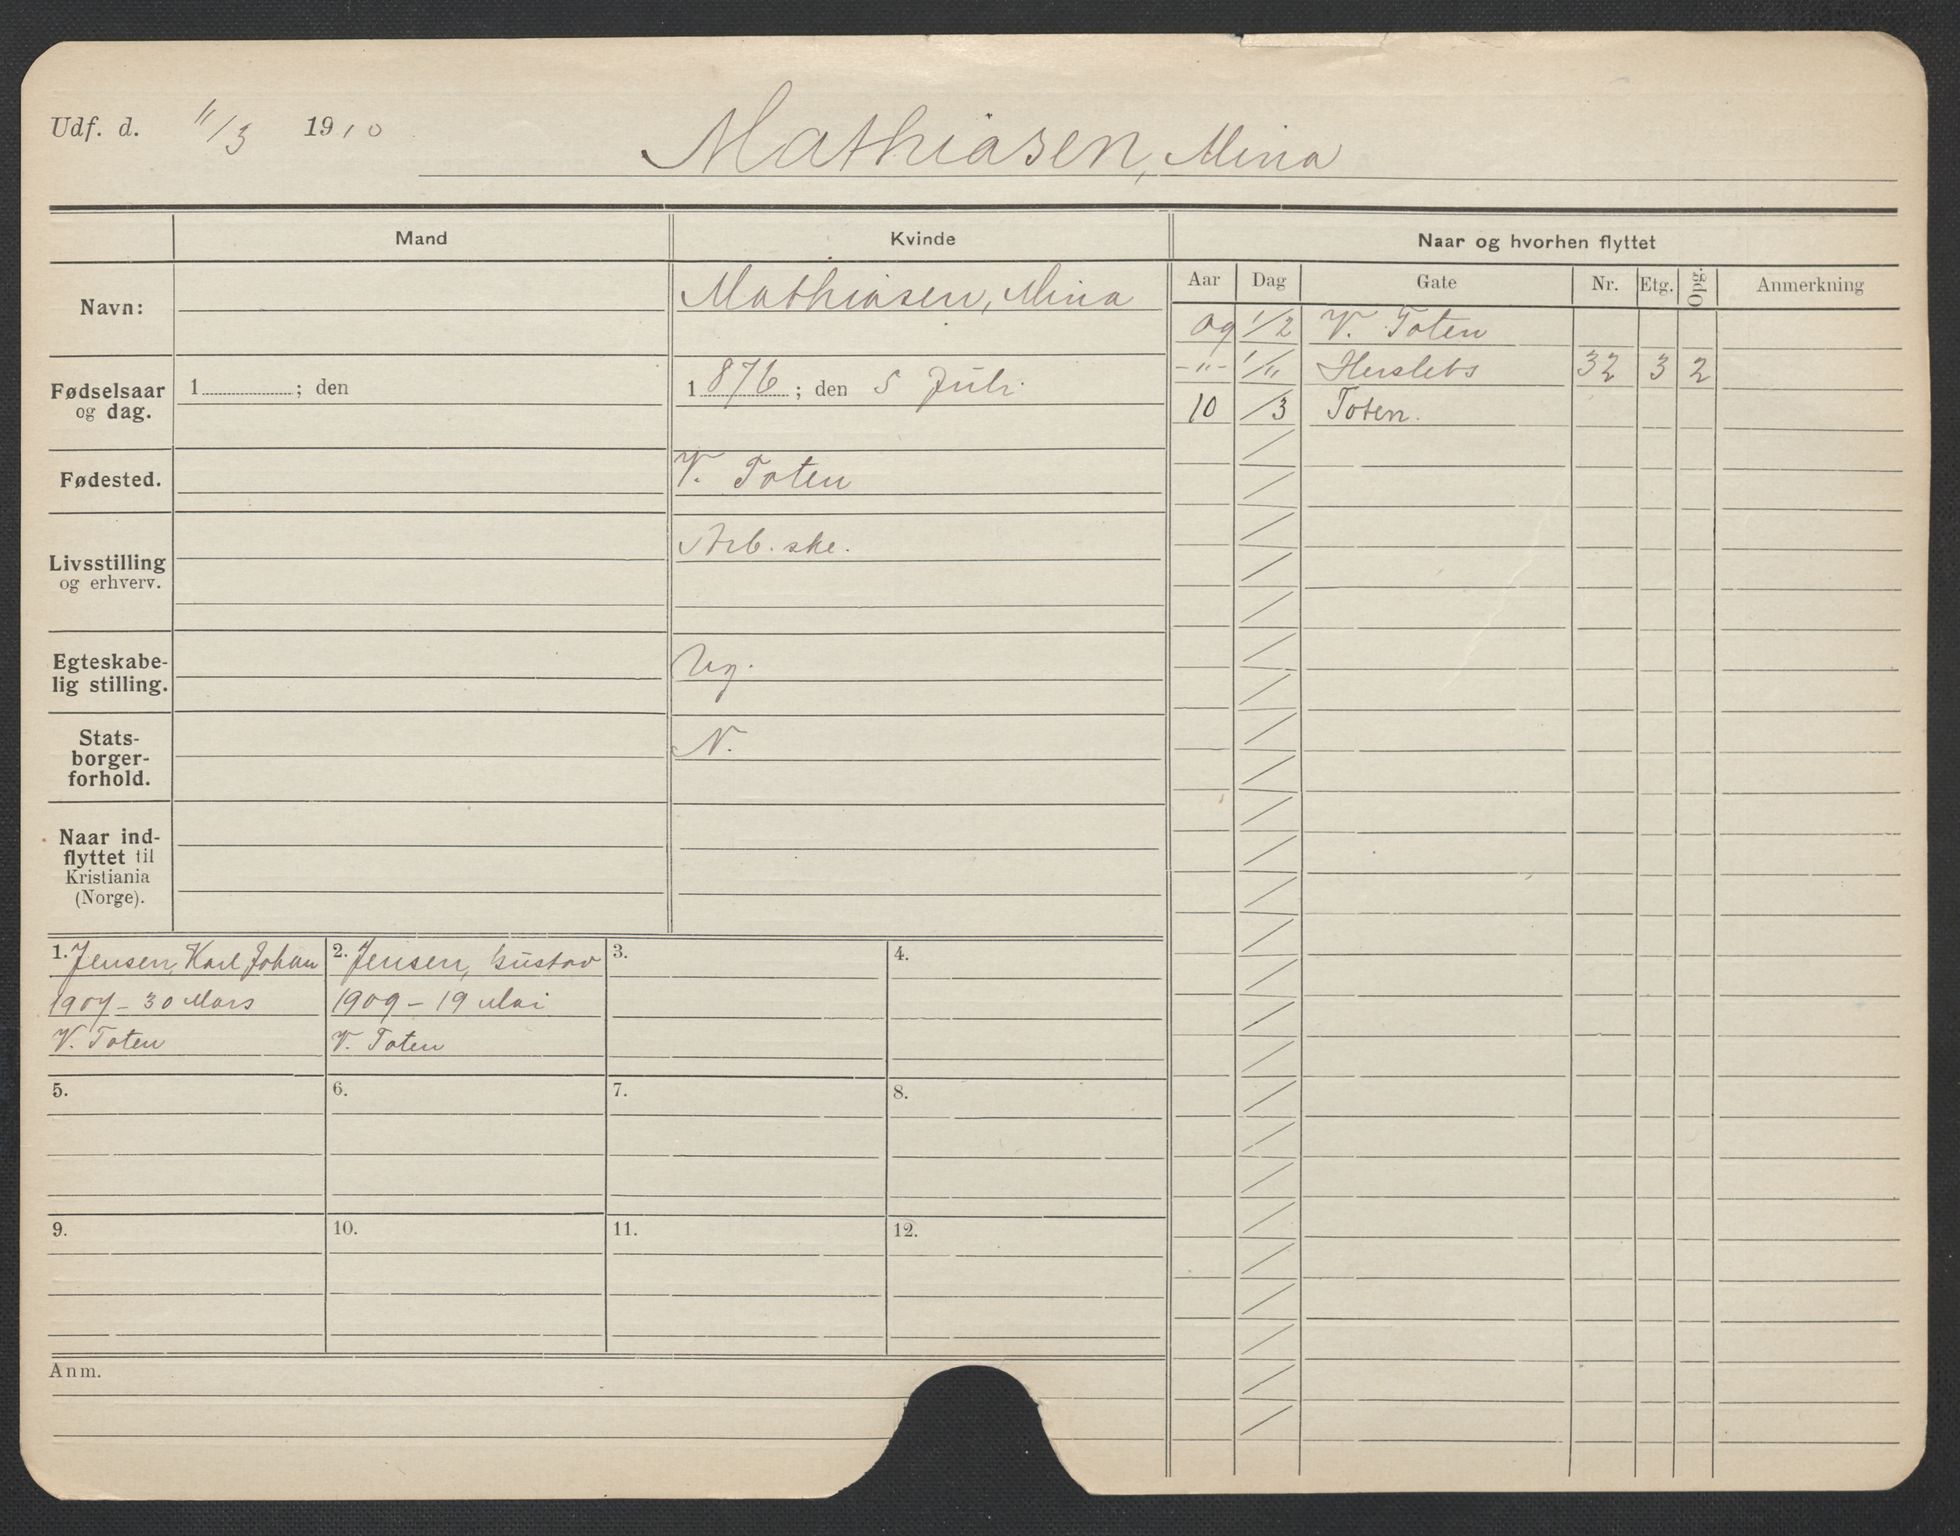 Udf. d. 11/3 1910
Mathiasen, Mina
Mand
Kvinde
Naar og hvorhen flyttet
Aar Dag Gate Nr. Etg. Opg. Anmerkning
Navn: Mathiasen, Mina
09 1/2 V. Toten
-"- 1/11 Herslebs 32 3 2
10 /3 Toten.
Fødselsaar
og dag.
1 ; den
1876 ; den 5 Juli
Fødested. V. Toten
Livsstilling
og erhverv.
Arb.ske.
Egteskabe-
lig stilling.
Ug.
Stats-
borger-
forhold.
N.
Naar ind-
flyttet til
Kristiania
(Norge).
1. Jensen, Karl Johan
1907 - 30 Mars
V. Toten
2. Jensen, Gustav
1909 - 19 Mai
V. Toten
3.
4.
5.
6.
7.
8.
9.
10.
11.
12.
Anm.